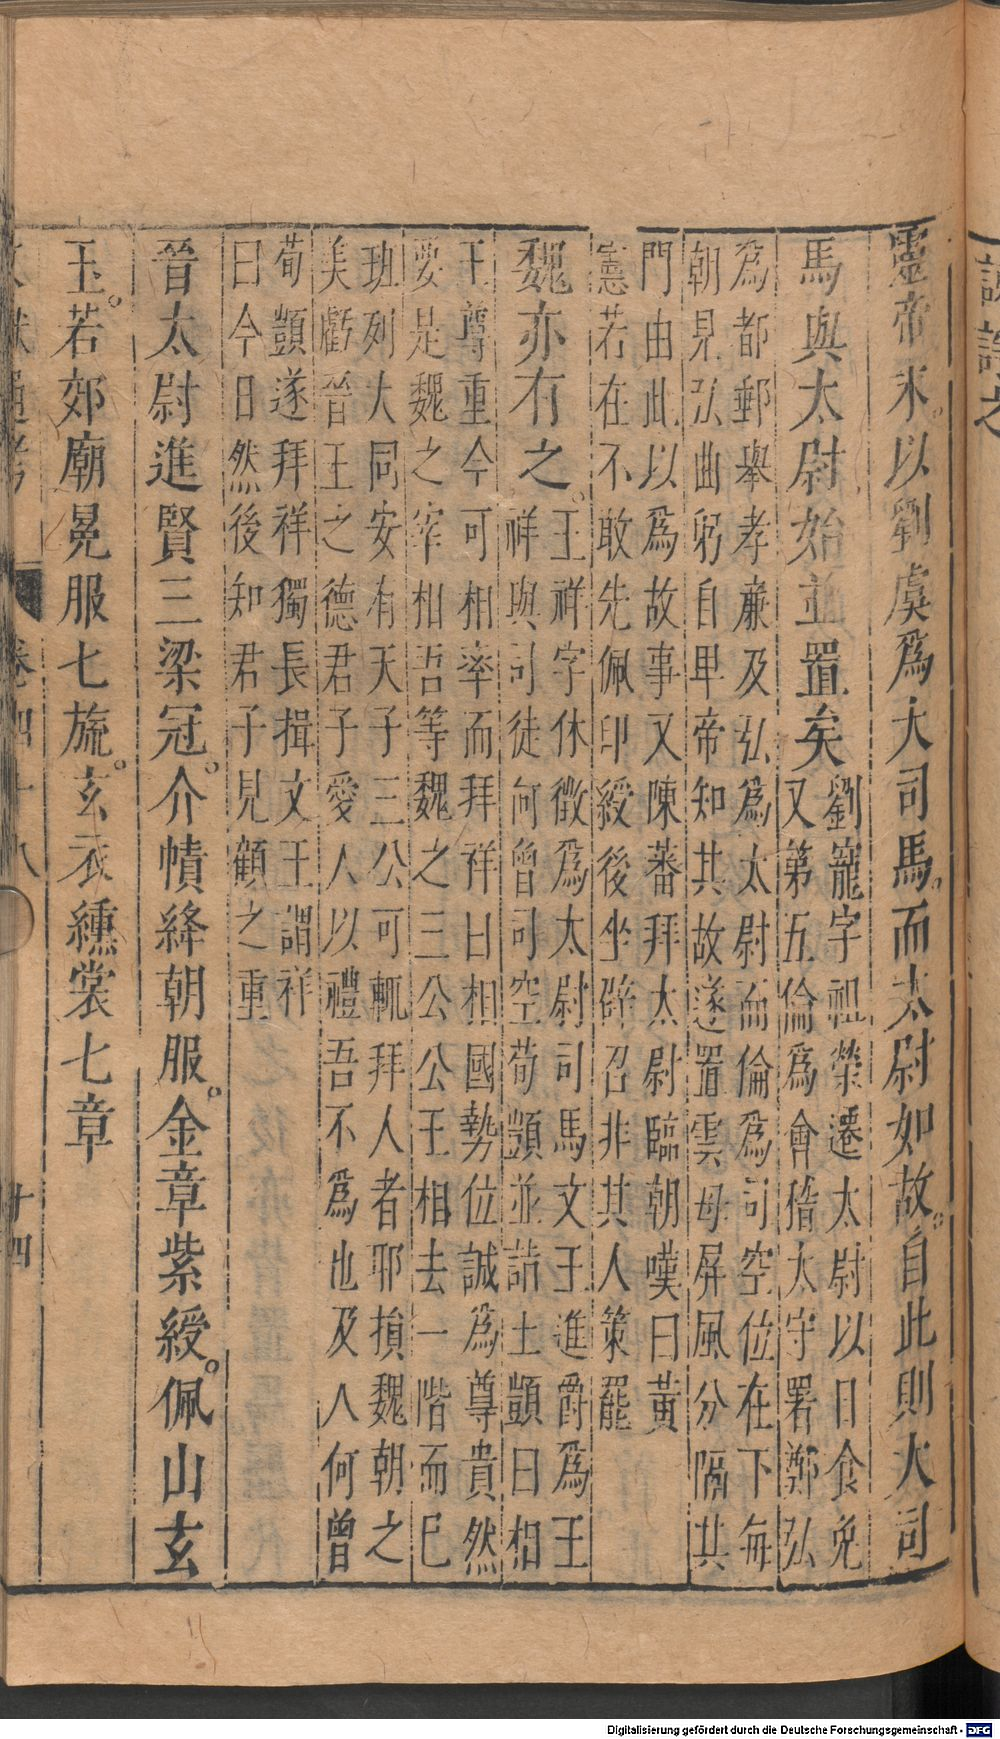 靈帝末以劉虞爲大司馬而太尉如故自此則大司
馬與太尉始並置矣
劉寵字祖榮遷太尉以日食免
又第五倫爲會稽太守署鄭弘
爲都郵舉孝亷及弘爲太尉而倫爲司空位在下每
朝見弘曲躬自卑帝知其故遂置雲母屏風分隔其
門由此以爲故事又陳蕃拜太尉臨朝嘆曰黃
憲若在不敢先佩印綬後坐辟召非其人策罷
魏亦有之
王祥字休徵爲太尉司馬文王進爵爲王
祥與司徒何曾司空荀顗並詣王顗曰相
王尊重今可相率而拜祥曰相國勢位誠爲尊貴然
要是魏之宰相吾等魏之三公公王相去一階而已
班列大同安有天子三公可輒拜人者耶損魏朝之
美虧晉王之德君子愛人以禮吾不爲也及入何曾
荀顗遂拜祥獨長揖文王謂祥
曰今日然後知君子見顧之重
晉太尉進賢三梁冠介幘絳朝服金章紫綬佩山玄
玉若郊廟冕服七旒玄衣纁裳七章
文獻通考 卷四十八 十四
Digitalisierung gefördert durch die Deutsche Forschungsgemeinschaft - DFG